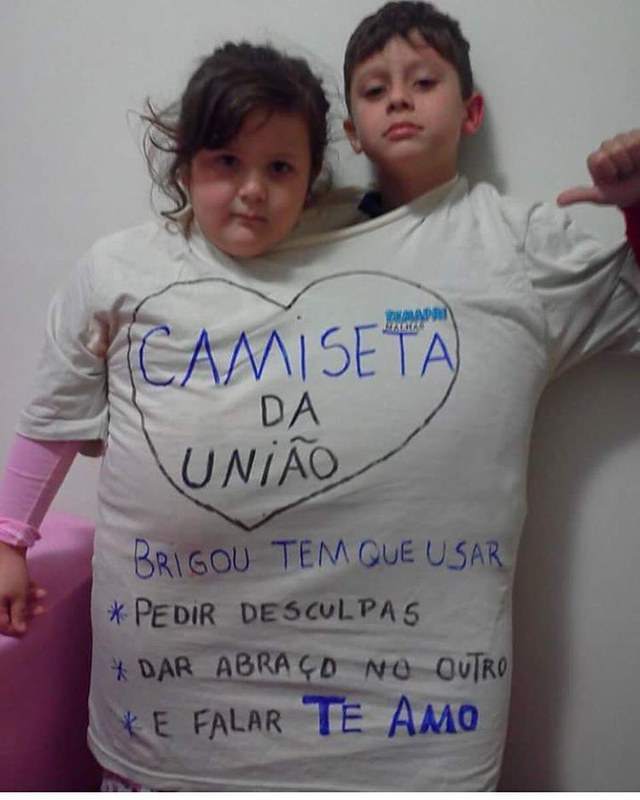 CAMISETA
DA
UNIÃO
BRIGOU TEM QUE USAR
* PEDIR DESCULPAS
* DAR ABRAÇO NO OUTRO
* E FALAR TE AMO